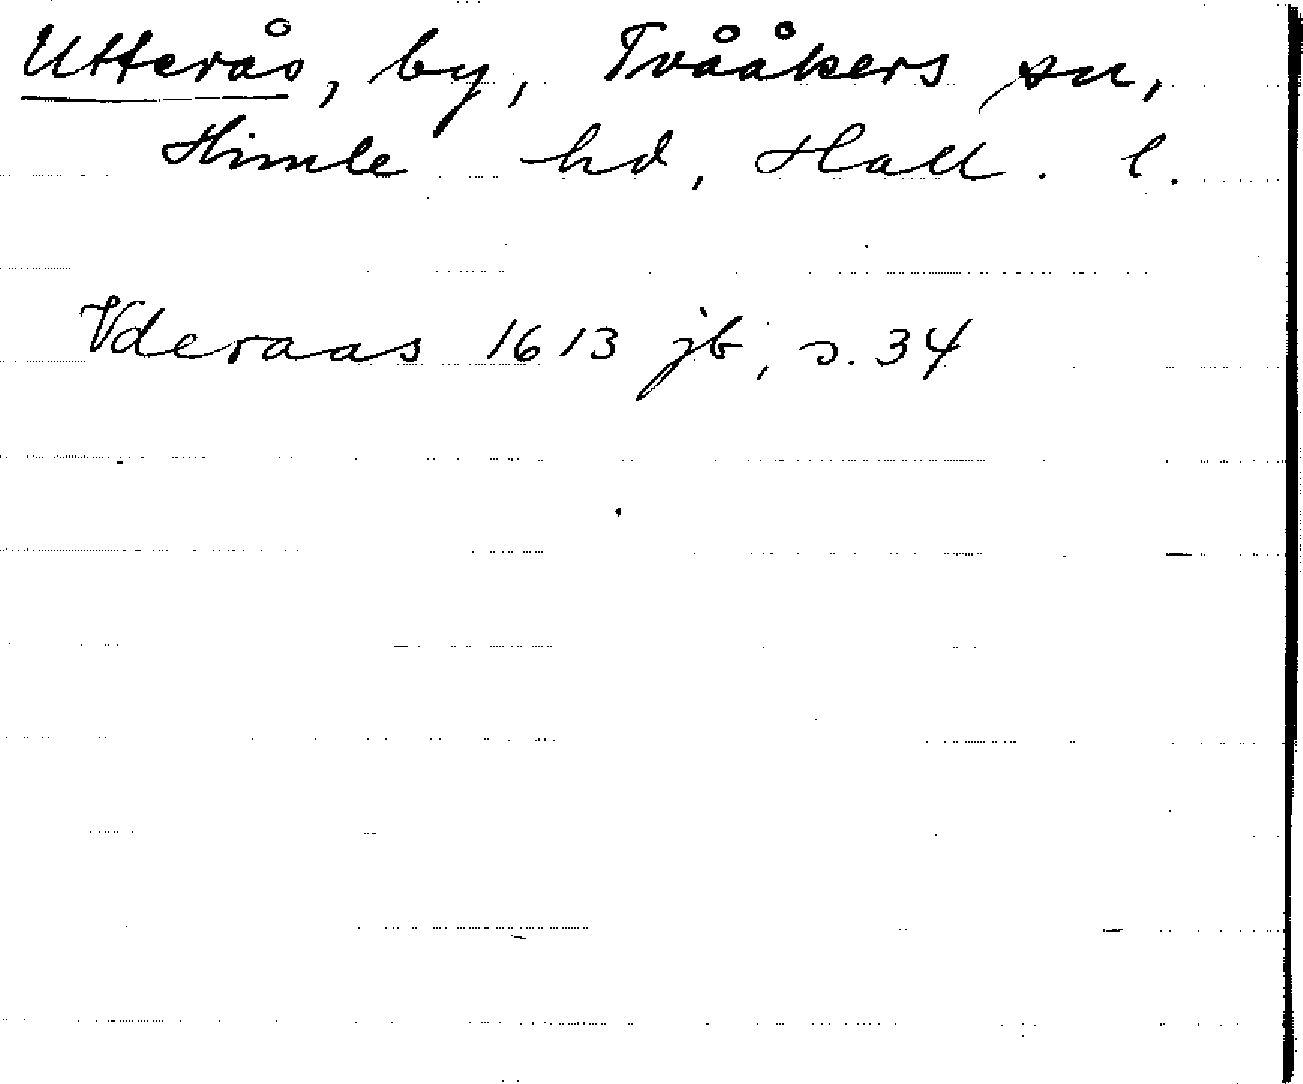 Utterås, by, Tvååkers sn,
Himle hd, Hall. l.
Vderaas 1613 jb, s. 34